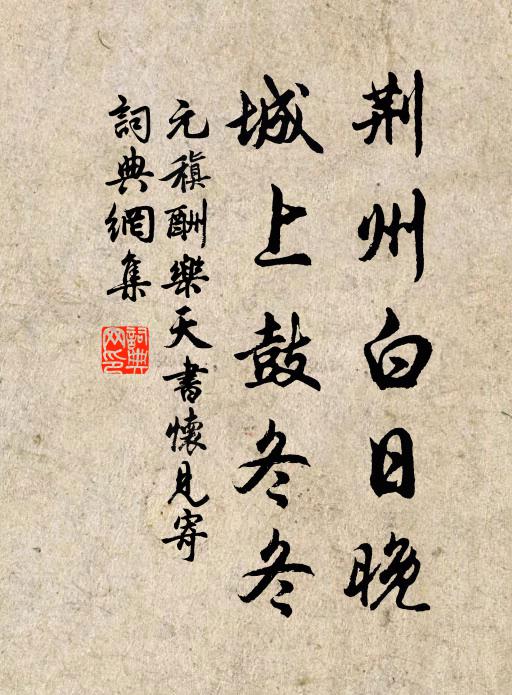 荆州白日晚
城上鼓冬冬
元稹酬樂天書懷見寄
詞典網集
詞典网印